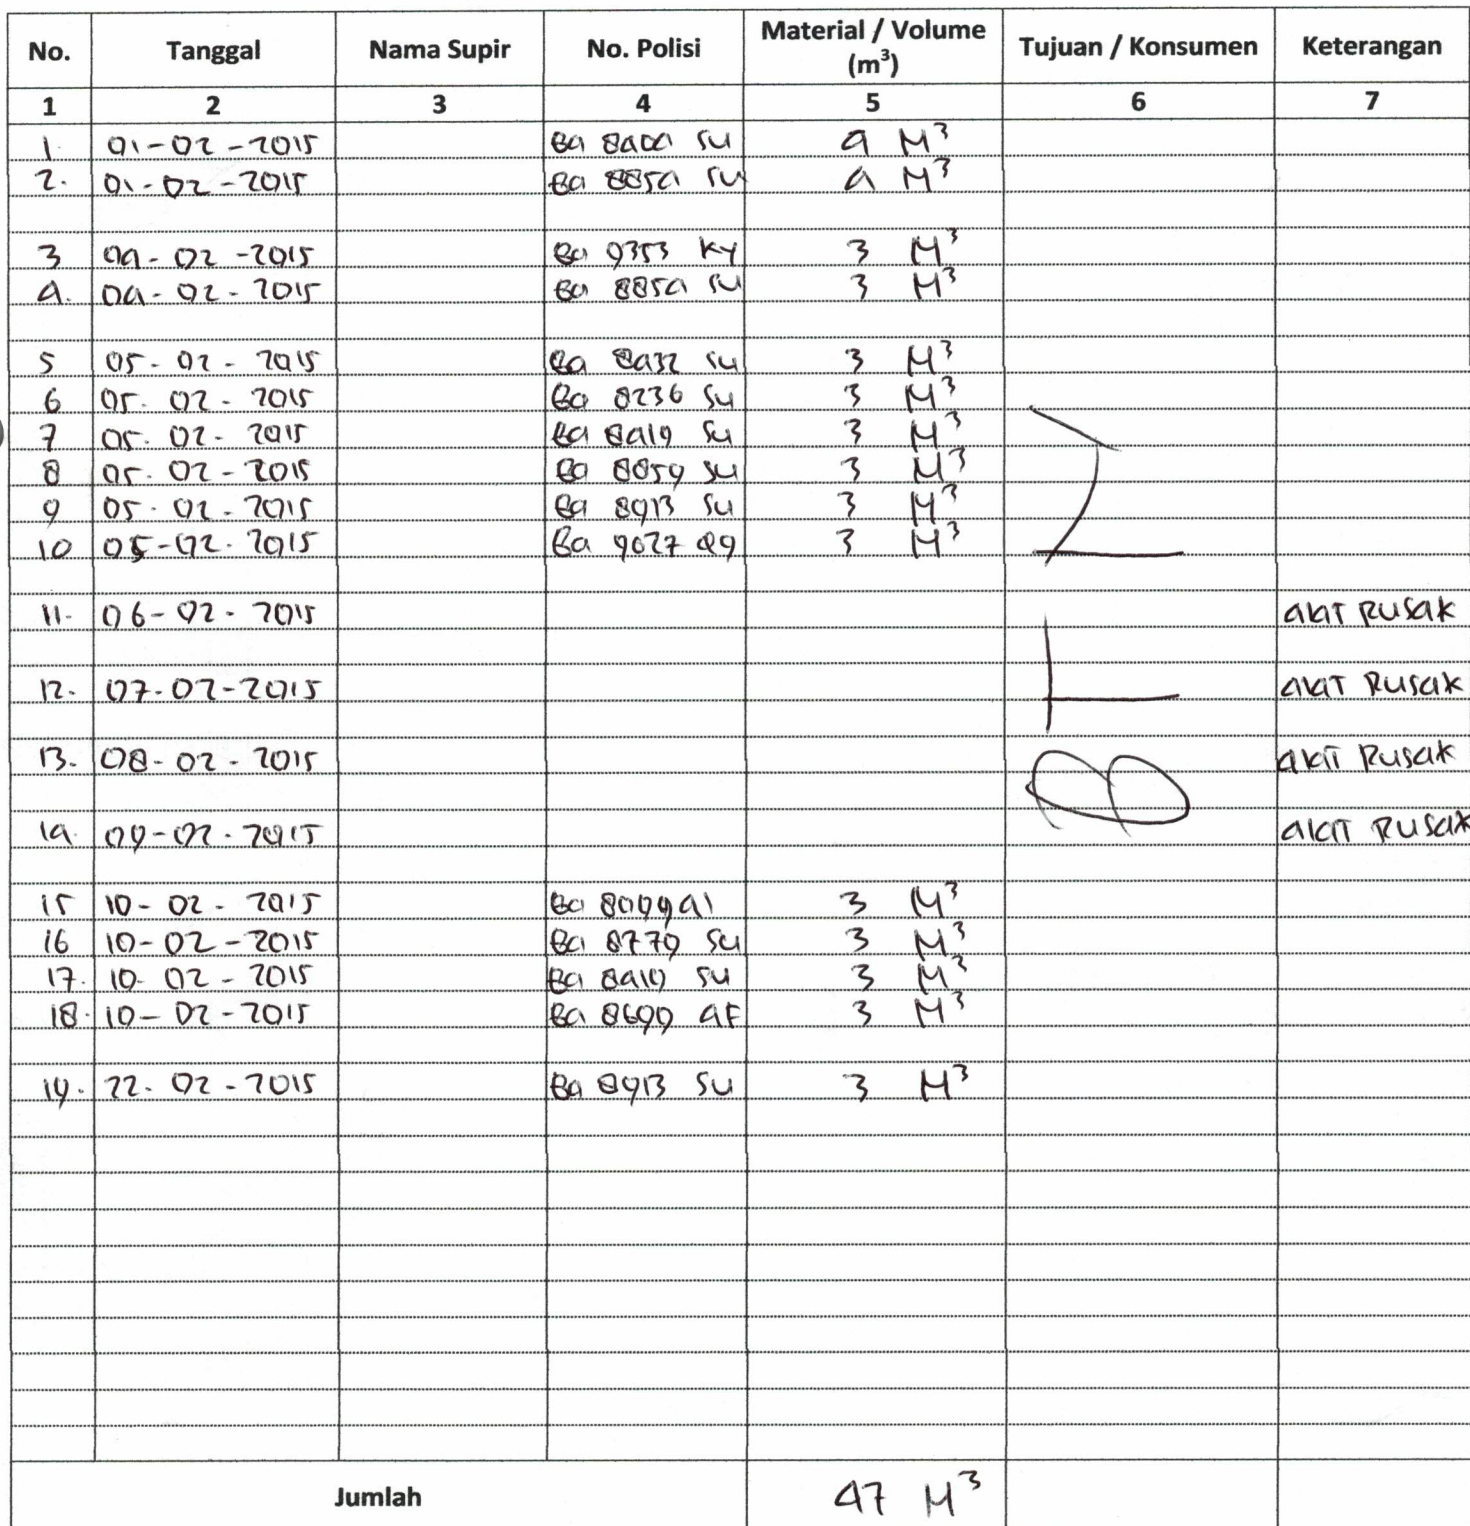 No. Tanggal Nama Supir No. Polisi Material / Volume (m³) Tujuan / Konsumen Keterangan
1 2 3 4 5 6 7
1. 01-02-2015 Ba 8404 SU 4 M³
2. 01-02-2015 Ba 8854 SU 4 M³
3 04-02-2015 Ba 9353 KY 3 M³
4. 04-02-2015 Ba 8854 SU 3 M³
5 05-02-2015 Ba 8432 SU 3 M³
6 05-02-2015 Ba 8236 SU 3 M³
7 05-02-2015 Ba 8419 SU 3 M³
8 05-02-2015 Ba 8859 SU 3 M³
9 05-02-2015 Ba 8913 SU 3 M³
10 05-02-2015 Ba 9027 3 M³
11. 06-02-2015 alat Rusak
12. 07-02-2015 alat Rusak
13. 08-02-2015 alat Rusak
14. 09-02-2015 alat Rusak
15 10-02-2015 Ba 3 M³
16 10-02-2015 Ba 8779 SU 3 M³
17. 10-02-2015 Ba 8419 SU 3 M³
18. 10-02-2015 Ba 8699 AF 3 M³
19. 22-02-2015 Ba 8913 SU 3 M³
Jumlah 47 M³